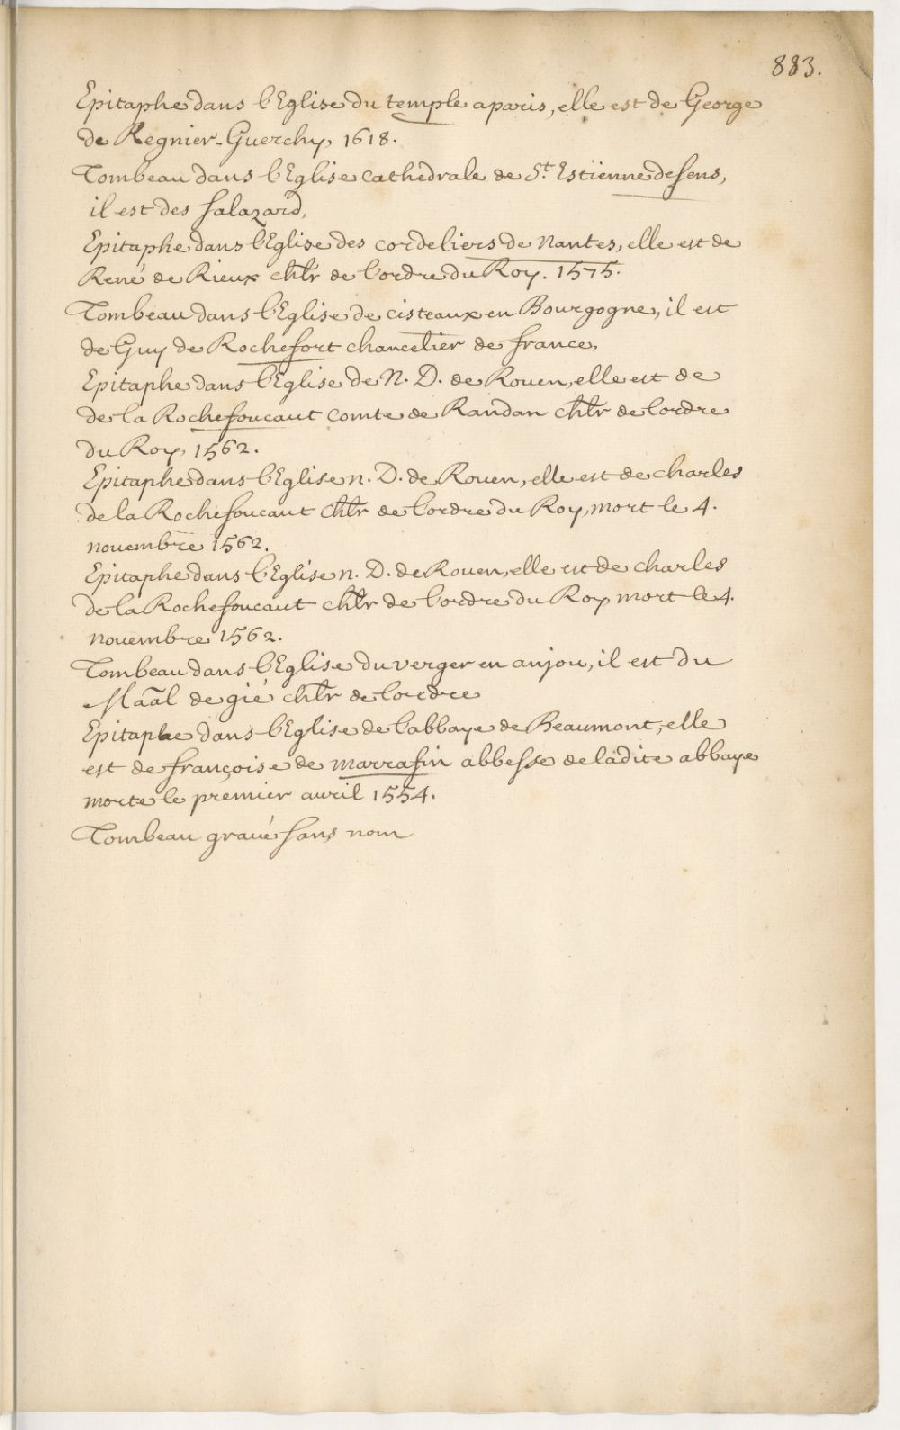 883.
Epitaphe dans l'Eglise du temple a paris, elle est de George
de Regnier-Guerchy, 1618.
Tombeau dans l'Eglise cathedrale de St. Estienne de Sens,
il est des Salazard,
Epitaphe dans l'Eglise des cordeliers de Nantes, elle est de
René de Rieux chlr de l'ordre du Roy. 1575.
Tombeau dans l'Eglise de cisteaux en Bourgogne, il est
de Guy de Rochefort chancelier de france,
Epitaphe dans l'Eglise de N. D. de Rouen, elle est de
de la Rochefoucaut comte de Randan chlr de lordre
du Roy, 1562.
Epitaphe dans l'Eglise n. D. de Rouen, elle est de charles
de la Rochefoucaut chlr de lordre du Roy, mort le 4.
novembre 1562.
Epitaphe dans l'Eglise n. D. de Rouen, elle est de charles
de la Rochefoucaut chlr de l'ordre du Roy mort le 4.
novembre 1562.
Tombeau dans l'Eglise du verger en anjou, il est du
Maal de gié chlr de lordre
Epitaphe dans l'Eglise de l'abbaye de Beaumont, elle
est de françoise de marrafin abbesse de ladite abbaye
morte le premier avril 1554.
Tombeau gravé sans nom